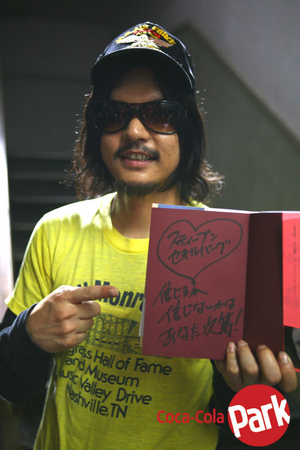 スティーブン
セキルバーグ
信じるか
信じないかは
あなた次第!
ll Monr
grass Hall of Fame
and Museum
usic Valley Drive
Nashville, TN
Coca-Cola Park